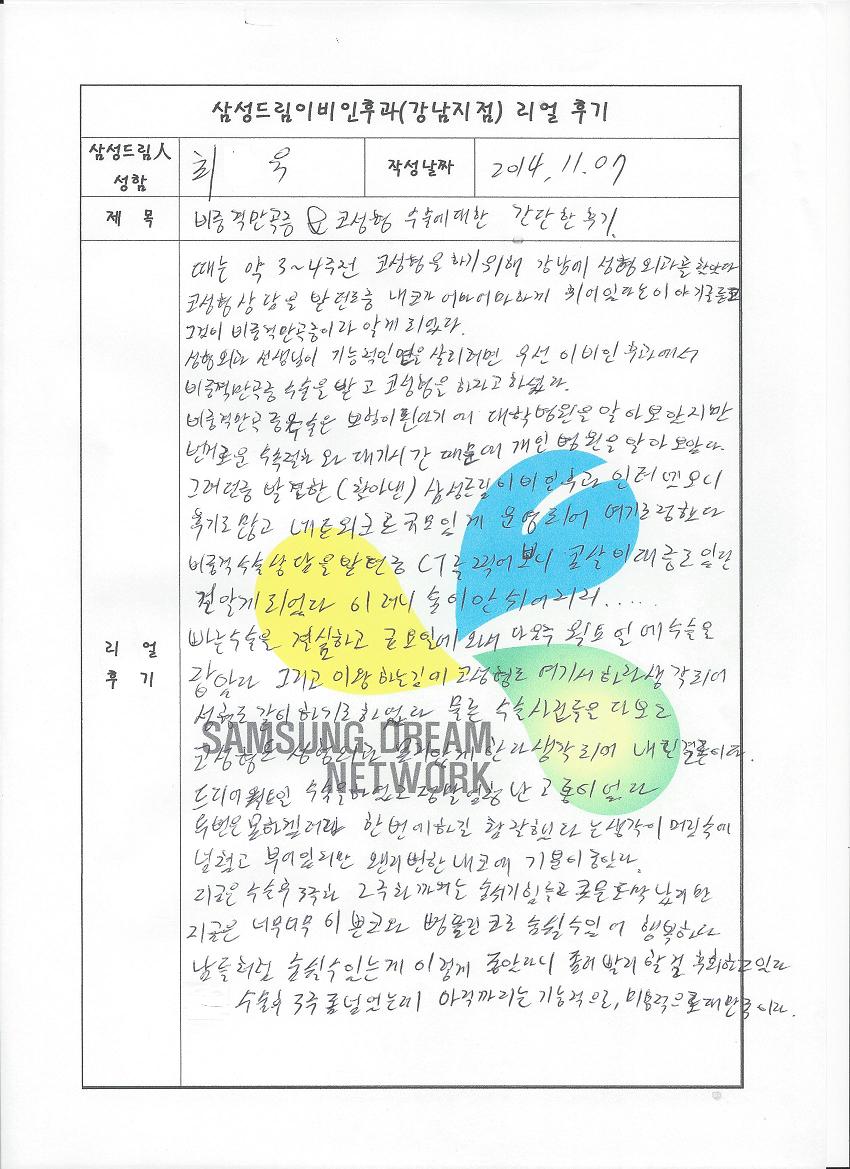 삼성드림이비인후과(강남지점) 리얼 후기
삼성드림人 성함
최 욱
작성날짜
2014. 11. 07
제 목
비중격만곡증 및 코성형 수술에대한 간단한 후기.
리 얼 후 기
때는 약 3~4주전 코성형을 하기위해 강남에 성형외과를 찾았다
코성형 상담을 받던도중 내코가 어마어마하게 휘어있다는 이야기를듣고
그것이 비중격만곡증이라 알게 되었다.
성형외과 선생님이 기능적인면을 살리려면 우선 이비인후과에서
비중격만곡증 수술을 받고 코성형을 하라고 하셨다.
비중격만곡증수술은 보험이 된다기에 대학병원을 알아보았지만
번거로운 수속절차 와 대기시간 때문에 개인 병원을 알아보았다.
그러던중 발견한 (찾아낸) 삼성드림이비인후과 인터넷보니
후기도 많고 네트워크로 규모있게 운영되어 여기로 정했다
비중격 수술 상담을 받던중 CT를 찍어보니 코살이
걸 알게 되었다 이러니 숨이 안 쉬어지지.....
바로수술을 결심하고 금요일에 와서 다음주 월요일에 수술을
잡았다 그리고 이왕 하는김에 코성형도 여기서 하자 생각되어
성형도 같이 하기로 하였다 물론 수술사진들을 다보고
SAMSUNG DREAM
NETWORK
코성형은 성형외과 한다 생각되어 내린결론이다.
드디어 월요일 수술을하였고 정말 엄청난 고통이었다
두번은 못하겠더라 한번에하길 참 잘했다 는생각이 머릿속에
넘쳤고 부어있지만 왠지 변한 내코에 기분이 좋았다.
지금은 수술후 3주차 2주차 까지는 숨쉬기 힘들고 콧물도 막 났지만
지금은 너무너무 이쁜코와 뻥뚫린 코로 숨쉴수있어 행복하다
남들처럼 숨쉴수있는게 이렇게 좋았다니 좀더 빨리 할걸 후회하고있다
수술후 3주 좀넘었는데 아직까지는 기능적으로, 미용적으로 대만족이다.